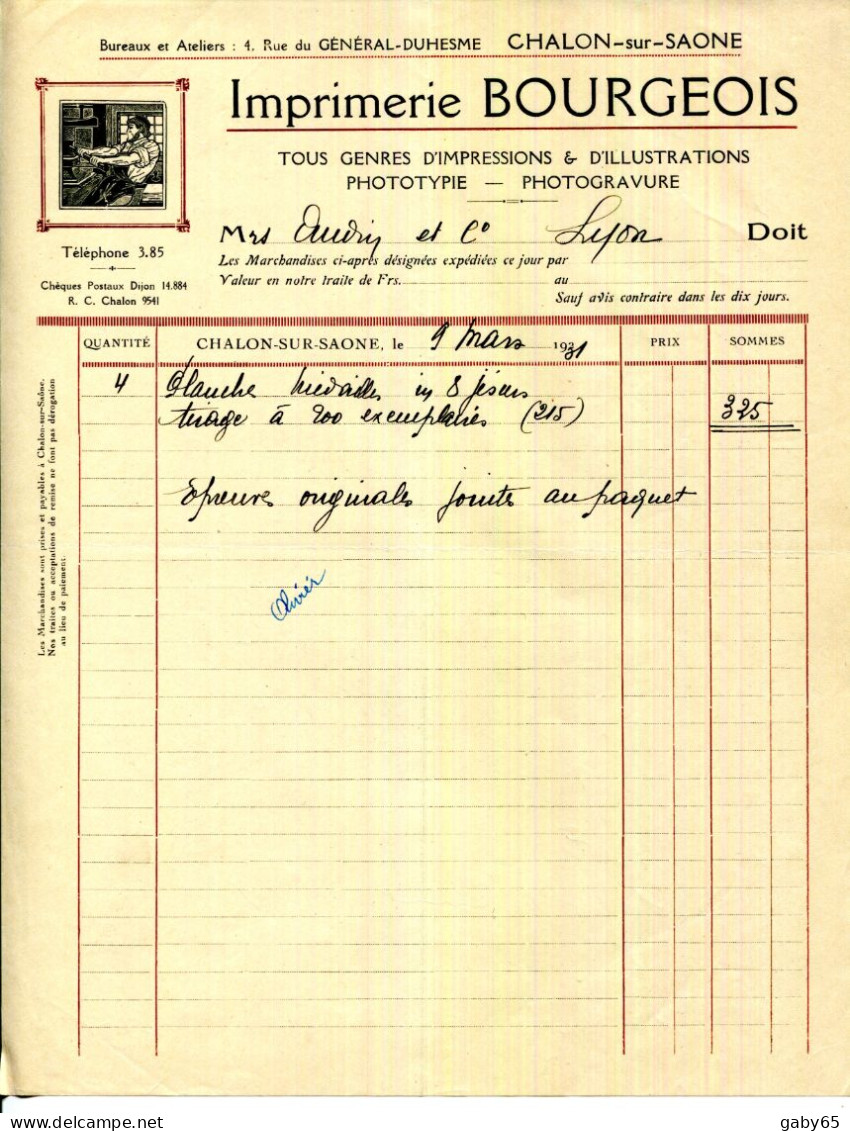 Bureaux et Ateliers : 4, Rue du GÉNÉRAL-DUHESME CHALON-sur-SAONE
Imprimerie BOURGEOIS
TOUS GENRES D'IMPRESSIONS & D'ILLUSTRATIONS
PHOTOTYPIE — PHOTOGRAVURE
Téléphone 3.85
Chèques Postaux Dijon 14.884
R. C. Chalon 9541
Mrs Audry et Co Lyon Doit
Les Marchandises ci-après désignées expédiées ce jour par
Valeur en notre traite de Frs. au
Sauf avis contraire dans les dix jours.
QUANTITÉ CHALON-SUR-SAONE, le 9 Mars 1931 PRIX SOMMES
4 Planche Médailles in 8 jésus
tirage à 200 exemplaires (215) 325
Epreuves originales jointes au paquet
Olivier
Les Marchandises sont prises et payables à Chalon-sur-Saône.
Nos traites ou acceptations de remise ne font pas dérogation
au lieu de paiement.
gaby65